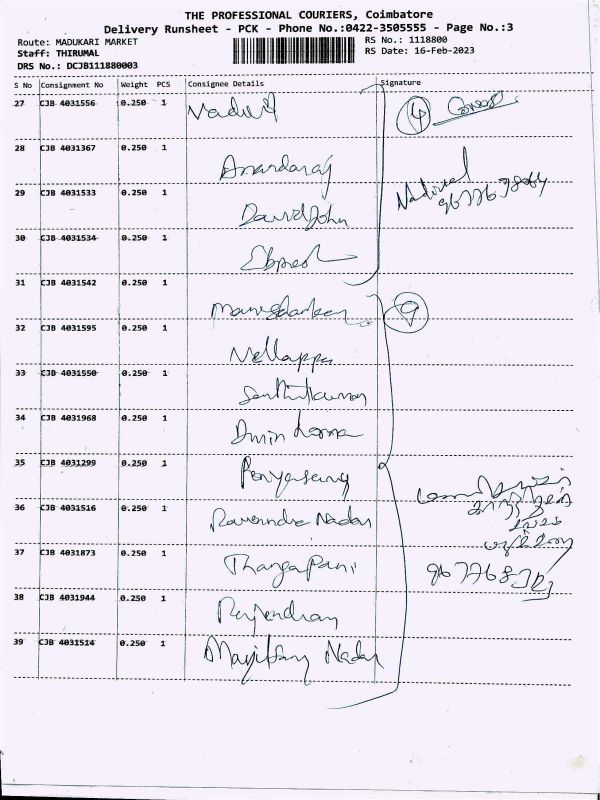 THE PROFESSIONAL COURIERS, Coimbatore
Delivery Runsheet - PCK - Phone No.:0422-3505555 - Page No.:3
Route: MADUKARI MARKET
RS No.: 1118800
Staff: THIRUMAL
RS Date: 16-Feb-2023
DRS No.: DCJB111880003
S No Consignment No Weight PCS Consignee Details Signature
27 CJB 4031556 0.250 1 4
28 CJB 4031367 0.250 1 Anandaraj
29 CJB 4031533 0.250 1 David John
30 CJB 4031534 0.250 1
31 CJB 4031542 0.250 1 9
32 CJB 4031595 0.250 1 Vellappa
33 CJB 4031550 0.250 1 Senthilkumar
34 CJB 4031968 0.250 1
35 CJB 4031299 0.250 1
36 CJB 4031516 0.250 1 Nadar
37 CJB 4031873 0.250 1 Thangapani
38 CJB 4031944 0.250 1 Rajendran
39 CJB 4031514 0.250 1 Nadar